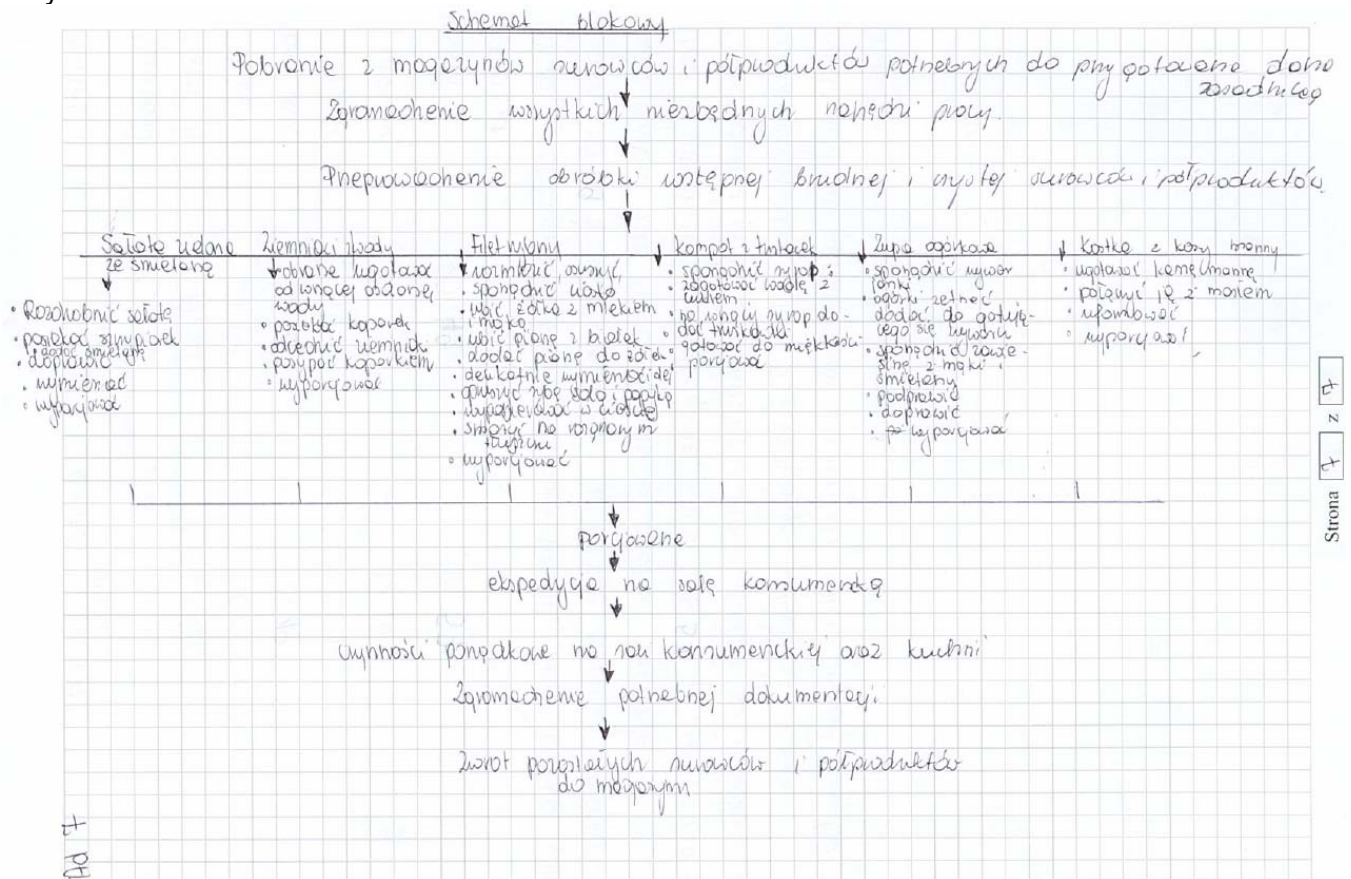 Schemat blokowy
Pobranie z magazynów surowców i półproduktów potrzebnych do przygotowania dania
zasadniczego
Zgromadzenie wszystkich niezbędnych narzędzi pracy.
Przeprowadzenie obróbki wstępnej brudnej i czystej surowców i półproduktów.
Sałata zielona
ze śmietaną
• Rozdrobnić sałatę
• posiekać szczypiorek
• dodać śmietanę
• doprawić
• wymieszać
• wyporcjować
Ziemniaki z wody
• obrane ugotować
od wrzącej osolonej
wody
• posiekać koperek
• odcedzić ziemniaki
• posypać koperkiem
• wyporcjować
Filet rybny
• rozmrozić, osuszyć,
• sporządzić ciasto
• ubić żółtka z mlekiem
i mąką
• ubić pianę z białek
• dodać pianę do żółtek
• delikatnie wymieszać
• oprószyć rybę solą i papryką
• w cieście
• smażyć na rozgrzanym
tłuszczu
• wyporcjować
Kompot z truskawek
• sporządzić syrop:
zagotować wodę z
cukrem
• na wrzący syrop do-
dać truskawki
gotować do miękkości
porcjować
Zupa ogórkowa
• sporządzić wywar
• ogórki zetrzeć
dodać do gotują-
cego się wywaru
• sporządzić zawie-
sinę z mąki i
śmietany
• podprawić
• doprawić
• wyporcjować
Kostka z kaszy manny
• ugotować kaszę mannę
• połączyć ją z masłem
• uformować
• wyporcjować
porcjowanie
ekspedycja na salę konsumencką
czynności porządkowe na sali konsumenckiej oraz kuchni
Zgromadzenie potrzebnej dokumentacji.
Zwrot pozostałych surowców i półproduktów
do magazynu
Strona 7 z 7
Ad 7